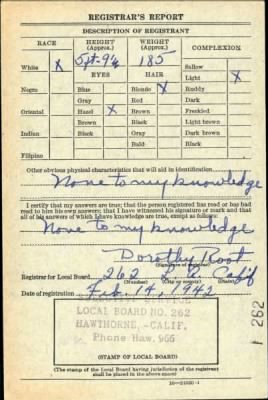 REGISTRAR'S REPORT
DESCRIPTION OF REGISTRANT
RACE HEIGHT (Approx.) WEIGHT (Approx.) COMPLEXION
White X 5 ft-9½ 185 Sallow
EYES HAIR Light X
Negro Blue Blonde X Ruddy
Gray Red Dark
Oriental Hazel X Brown Freckled
Brown Black Light brown
Indian Black Gray Dark brown
Bald Black
Filipino
Other obvious physical characteristics that will aid in identification
None to my knowledge
I certify that my answers are true; that the person registered has read or has had
read to him his own answers; that I have witnessed his signature or mark and that
all of his answers of which I have knowledge are true, except as follows:
None to my knowledge
Dorothy Root
(Signature of registrar)
Registrar for Local Board 262 L. A. Calif
(Number) (City or county) (State)
Date of registration Feb 14, 1942
SELECTIVE SERVICE
LOCAL BOARD NO. 262
HAWTHORNE, -CALIF.
Phone Haw. 966
(STAMP OF LOCAL BOARD)
(The stamp of the Local Board having jurisdiction of the registrant
shall be placed in the above space)
1 262